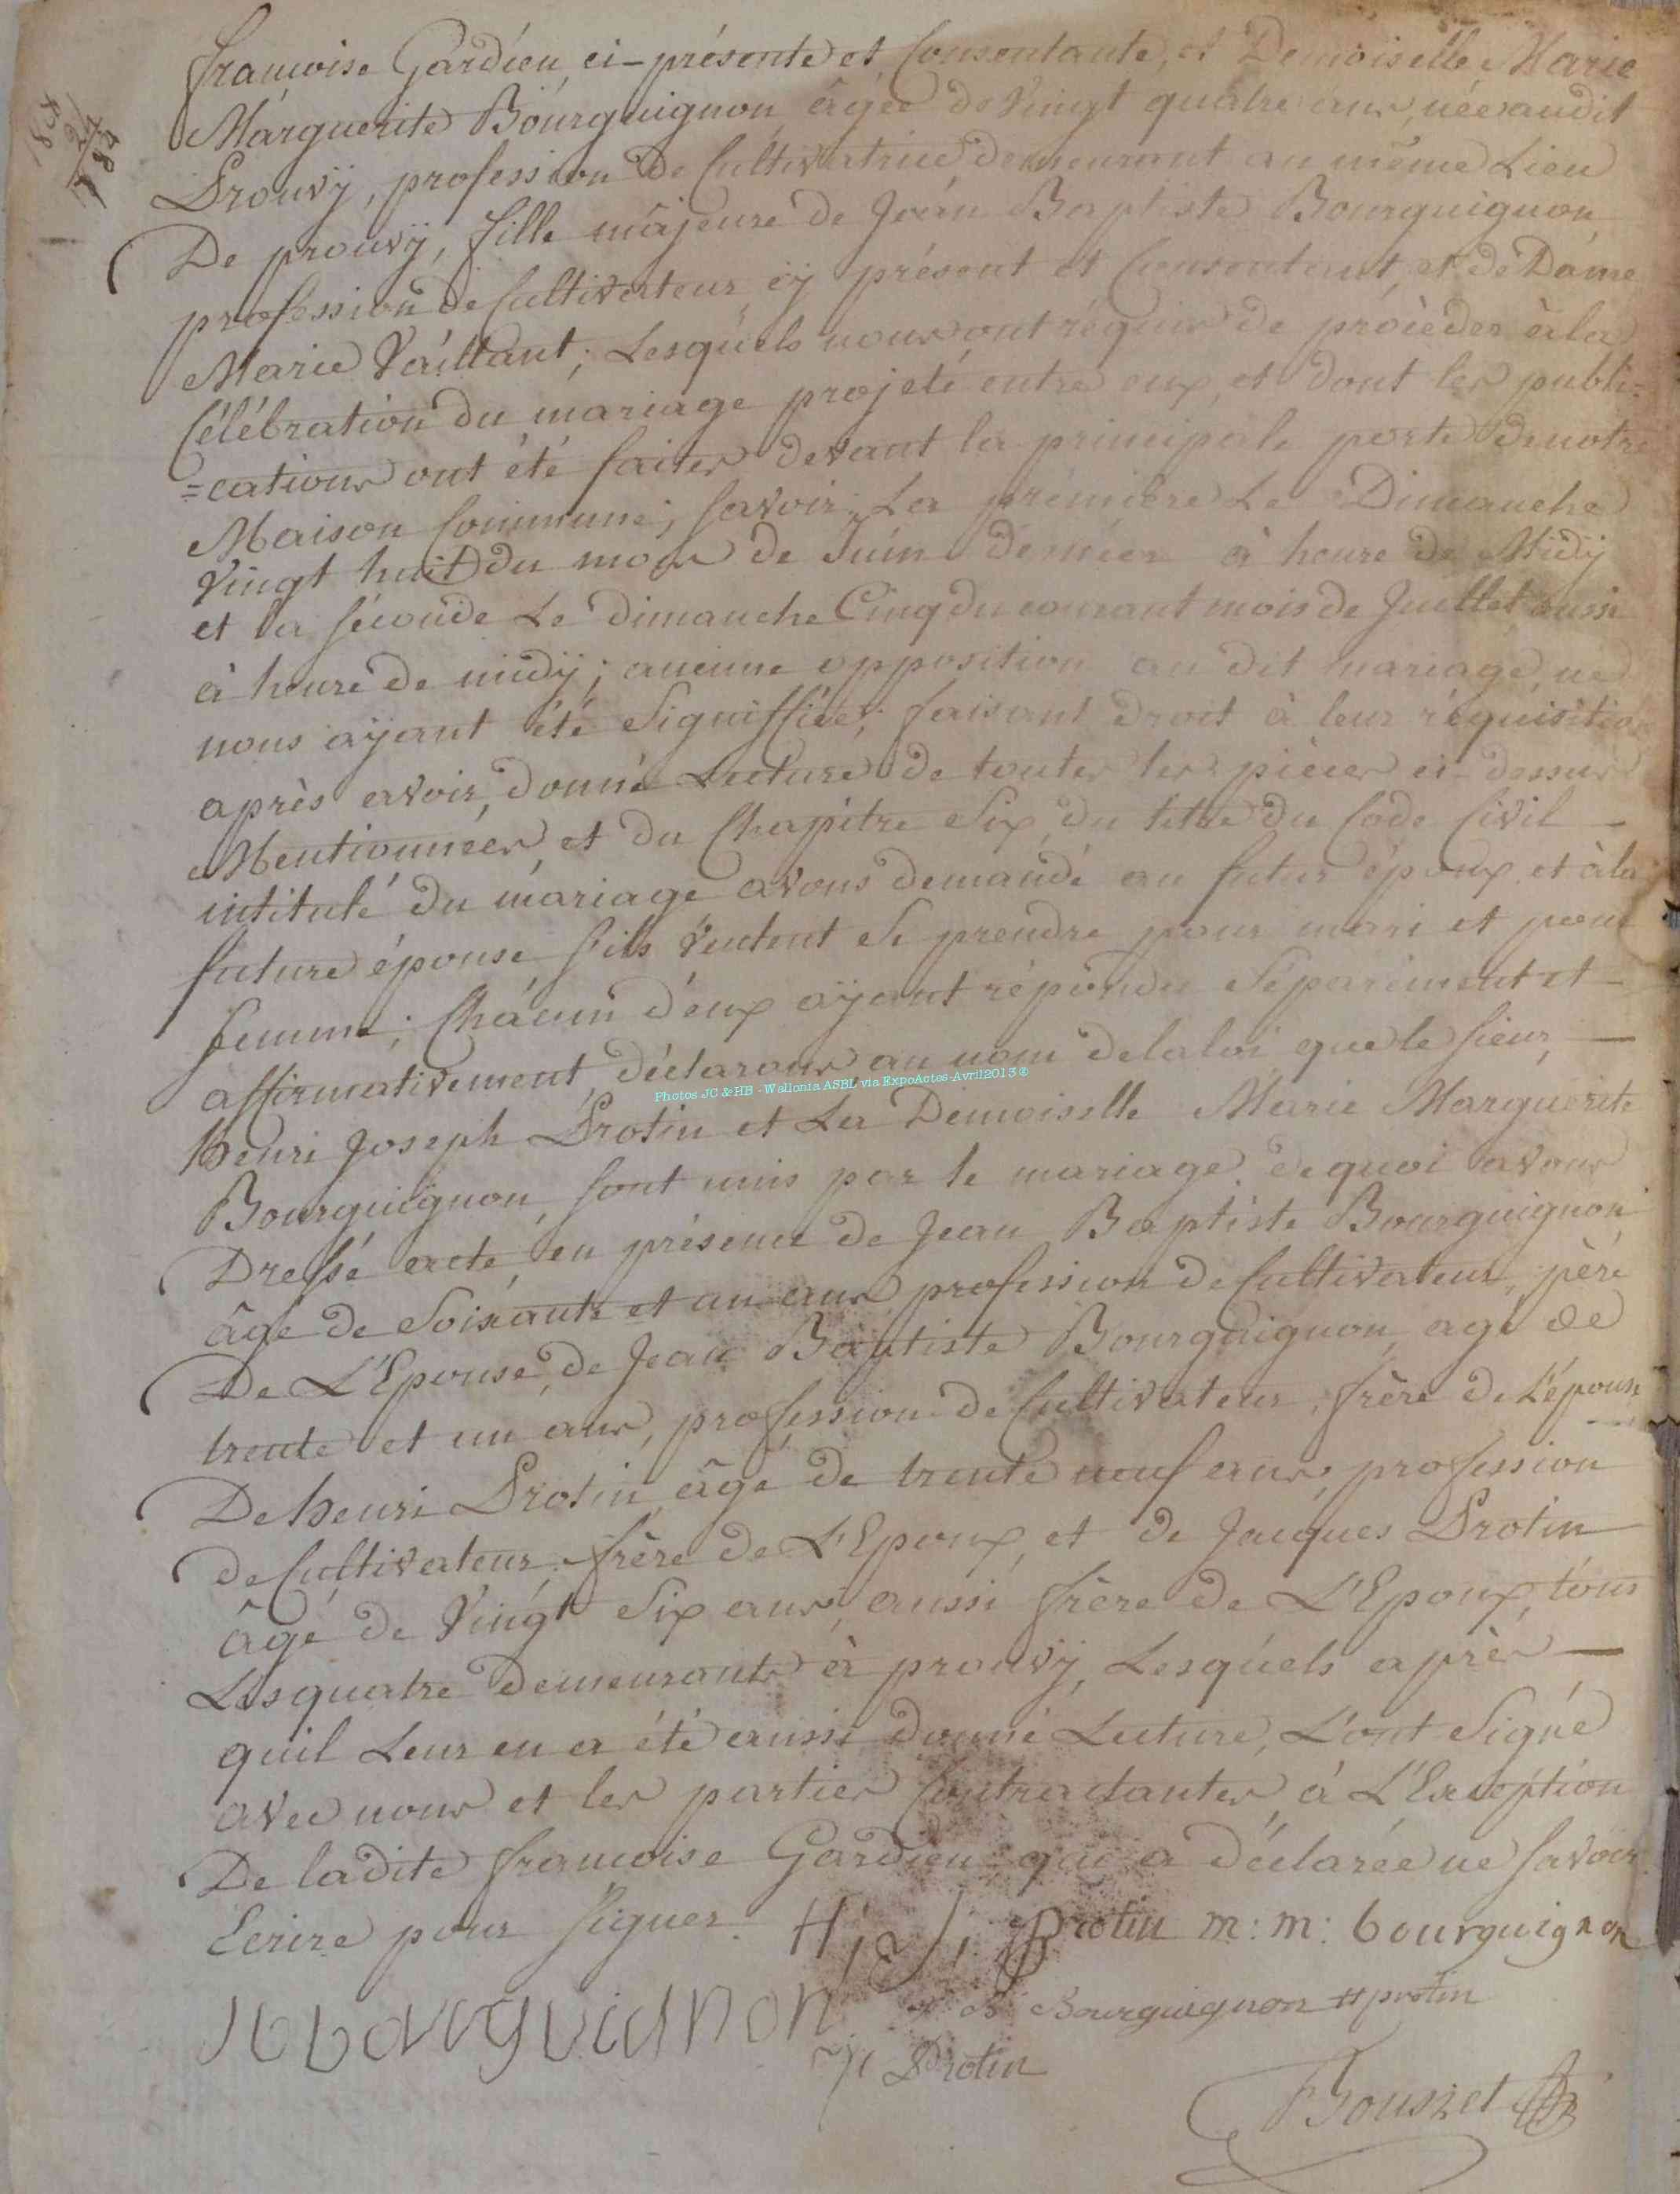 françoise Gardien, ci-présente et Consentante, et Demoiselle Marie
Marguerite Bourguignon âgée de Vingt quatre ans, née audit
Prouvÿ, profession de Cultivatrice, demeurant au même Lieu
De prouvÿ, fille majeure de Jean Baptiste Bourguignon
profession de Cultivateur, cÿ présent et Consentant, et de Dame
Marie Vaillant; Lesquels nous ont réquis de procèder à la
Célébration du mariage projeté entre eux, et dont les publi=
=cations ont été faites devant la principale porte de notre
Maison Commune; savoir; La prémière Le Dimanche
Vingt huit du mois de Juin dernier à heure de Midÿ
et la séconde Le Dimanche Cinq du courant mois de Juillet aussi
à heure de midÿ; aucune opposition au dit mariage ne
nous aÿant été Signiffiée; faisant droit à leur réquisition
après avoir, donné Lecture de toutes les pièces ci-dessus
Mentionnées, et du Chapitre Six, du titre du Code Civil -
intitulé du mariage avons demandé au futur époux et à la
future épouse s'ils Veulent Se prendre pour mari et pour
femme; Chácun d'eux aÿant répondu Séparément et -
affirmativement, déclarons au nom de la loi que le sieur, -
Henri Joseph Protin et La Demoiselle Marie Marguerite
Photos JC & HB - Wallonia ASBL via ExpoActes-Avril2013®
Bourguignon, sont unis par le mariage. de quoi avons
Dressé acte, en présence de Jean Baptiste Bourguignon
âgé de Soixante et un ans, profession de Cultivateur, père
De L'Epouse, de Jean Baptiste Bourguignon, agé de
trente et un ans, profession de Cultivateur, frère de L'épouse
De henri Protin, âgé de trente neuf ans, profession
de Cultivateur, frère de L'Epoux, et de Jacques Protin
âgé de Vingt Six ans, aussi frère de L'Epoux, tous
Les quatre Demeurants à prouvÿ, Lesquels après -
quil Leur en a été aussi donné Lecture, L'ont Signé
avec nous et les parties Contractantes, à L'Exception
De ladite françoise Gardien qui a déclarée ne savoir
Ecrire pour signer. H, J, Protin m: m: bourguignon
Bourguignon H protin
Protin
Bousret